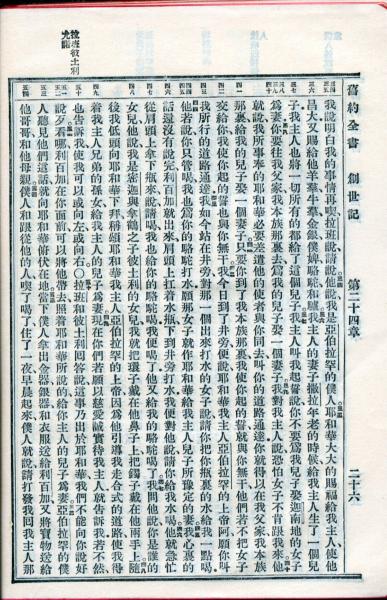 舊約全書 創世記 第二十四章 二十六
我說明白我的事情再喫拉班說請說他說我是亞伯拉罕的僕人耶和華大大的賜福給我主人使他
昌大又賜給他羊羣牛羣金銀僕婢駱駝和驢我主人的妻子撒拉年老的時候給我主人生了一個兒
子我主人也將一切所有的都給了這個兒子我主人叫我起誓說你不要爲我兒子娶迦南地的女子
爲妻你要往我父家我本族那裏去爲我的兒子娶一個妻子我對我主人說恐怕女子不肯跟我來他
就說我所事奉的耶和華必要差遣他的使者與你同去叫你的道路通達你就得以在我父家我本族
那裏給我的兒子娶一個妻子只要你到了我本族那裏我使你起的誓就與你無干他們若不把女子
交給你我使你起的誓也與你無干我今日到了井旁便說耶和華我主人亞伯拉罕的上帝阿願你叫
我所行的道路通達我如今站在井旁對那一個出來打水的女子說請你把你瓶裏的水給我一點喝
他若說你只管喝我也爲你的駱駝打水願那女子就作耶和華給我主人兒子所豫定的妻我心裏的
話還沒有說完利百加就出來肩頭上扛着水瓶下到井旁打水我便對他說請你給我水喝他就急忙
從肩頭上拿下瓶來說請喝我也給你的駱駝喝我便喝了他又給我的駱駝喝了我問他說你是誰的
女兒他說我是密迦與拿鶴之子彼土利的女兒我就把環子戴在他鼻子上把鐲子戴在他兩手上隨
後我低頭向耶和華下拜稱頌耶和華我主人亞伯拉罕的上帝因爲他引導我走合式的道路使我得
着我主人兄弟的孫女給我主人的兒子爲妻現在你們若願以慈愛誠實待我主人就告訴我若不然
也告訴我使我可以或向左或向右○拉班和彼土利回答說這事乃出於耶和華我們不能向你說好
說歹看哪利百加在你面前可以將他帶去照着耶和華所說的給你主人的兒子爲妻亞伯拉罕的僕
人聽見他們這話就向耶和華俯伏在地當下僕人拿出金器銀器和衣服送給利百加又將寶物送給
他哥哥和他母親僕人和跟從他的人喫了喝了住了一夜早晨起來僕人就說請打發我回我主人那
拉班彼土利
允諾